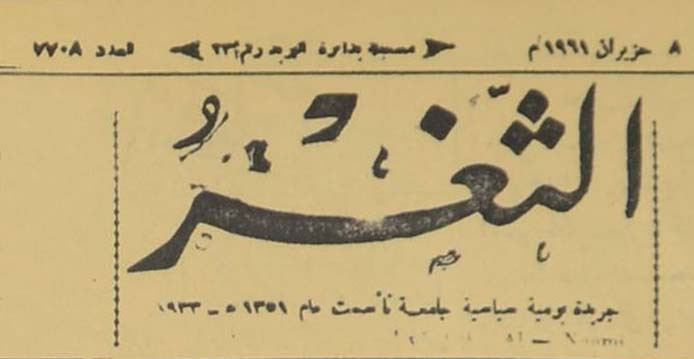 ٨ حزيران ١٩٦١م مسجلة بدائرة البريد رقم ٢٣١ العدد ٧٧٠٨
الثَّغْرُ
جريدة يومية سياسية جامعة تأسست عام ١٣٥١ ه - ١٩٣٣